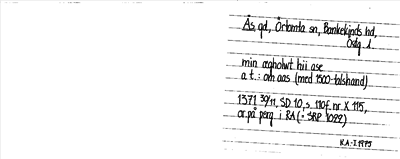 Ås, gd, Örtomta sn, Bankekinds hd,
Östg. l.
min ægholwt hii ase
a.t.: om aas (med 1500-talshand)
1371 30/11, SD 10, s. 110 f. nr. X 115,
or. på perg. i RA (: SRP 1022)
K.A.-I. 1975